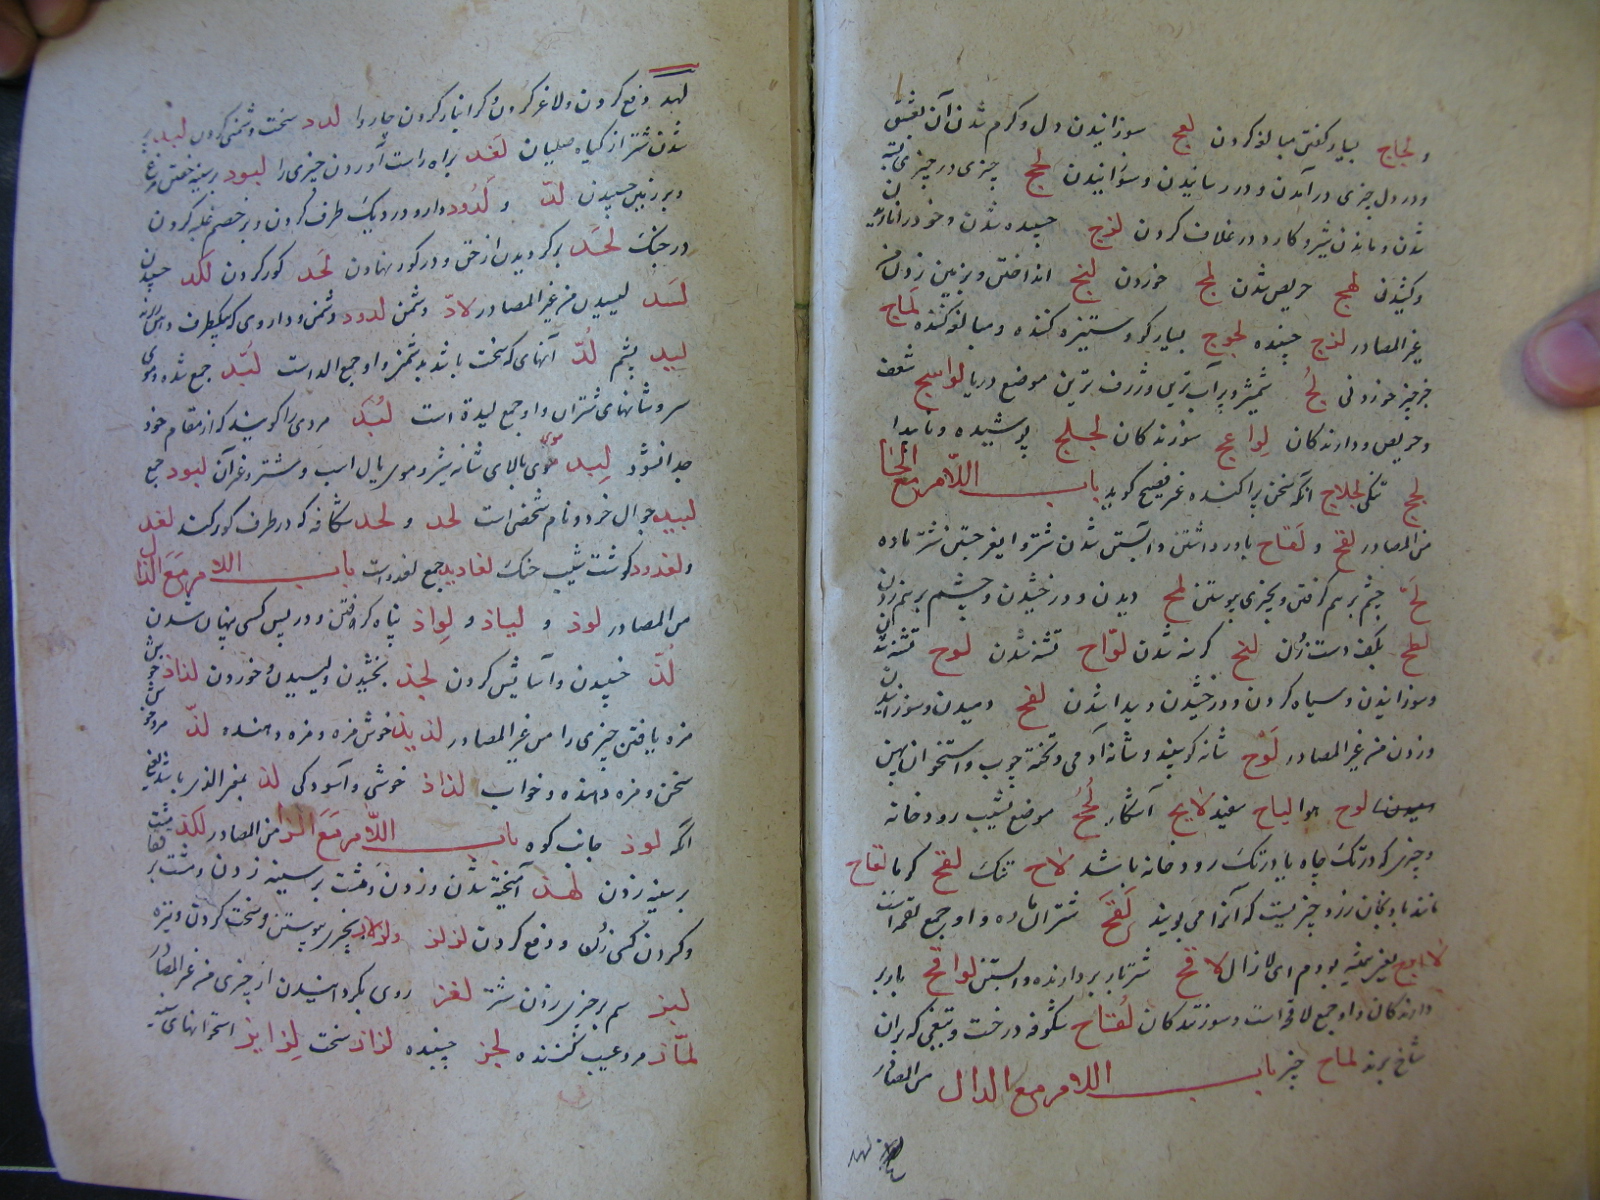 و لجاج بسیار گفتن مبالغه کردن لعج سوزانیدن دل و گرم شدن آن بعشق
و در دل چیزی در آمدن و درد رسانیدن و سوزانیدن لحج چیزی در چیزی
شدن و ماندن شیر و کارد در غلاف کردن لزج چسپیده شدن و خود را
و کشیدن لهج حریص شدن لمج خوردن لبج انداختن و بزمین زدن من
غیر المصادر لزج چسپنده لجوج بسیار کو و ستیزه کننده و مبالغه کننده لماج
هر چیز خوردنی لج شمشیر و پر آب ترین و ژرف ترین موضع دریا لواهج شعف
و حریص و دارندکان لواعج سوزندکان لجلج پوشیده و ناپیدا
لحج تنکی لجلاج آنکه سخن پراکنده غیر فصیح کوید باب اللام مع الحا
من المصادر لقح و لقاح بار برداشتن و آبستن شدن شتر و
لح چشم بر هم گرفتن و بچیزی پیوستن لمح دیدن و درخشیدن و چشم بر هم زدن
لطح بکف دست زدن لتح کرسنه شدن لواح تشنه شدن لوح تشنه شدن
و سوزانیدن و سیاه کردن و درخشیدن و پیدا شدن لفح دمیدن و سوزانیدن
و زدن من غیر المصادر لوح شانه کوسپند و شانه آدمی و تخته چوب و استخوان پهن
لوح هوا لیاح سفید لایح آشکار لحح موضع نشیب رودخانه
و چیزی که در تک چاه یا در تک رودخانه باشد لاح تنک لقح لقاح
مانند بادنجان زرد چیزیست که آنرا می بویند لقح شتران ماده و او جمع لقحه است
بودم ای لازال لاقح شتر بار بردارنده و آبستن لواقح بار بر
دارندکان و او جمع لاقح است و سوزندکان لفاح شکوفه درخت و که بران
شاخ برند لماح چیز باب اللام مع الدال من المصادر
لهد
لهد دفع کردن و لاغر کردن و کرانبار کردن چاروا لدد سخت دشمنی کردن لبد
شدن شتر از کیاه صلیان لغد براه راست آوردن چیزی را لبود بر سینه خفتن مرغ
و بر زمین چسپیدن لد و لدود دارو در یک طرف کردن و بر خصم غلبه کردن
در جنک لحد بر کردیدن از حق و در کور نهادن لحد کور کردن لکد چسپیدن
لسد لیسیدن من غیر المصادر لاد دشمن لدود دشمن و داروی که بیکطرف
لبید پشم لد آنهای که سخت باشد بدشمنی و او جمع الد است لبد جمع شده
سر و شانهای شتران و او جمع لبدة است لبد مردی را کویند که از مقام خود
جدا نشود لبد موی بالای شانه شیر و موی یال اسب و شتر و غیر آن لبود جمع
لبید جوال خرد و نام شخصی است لحد و لحد شکافه که در طرف کور کنند لغد
و لغدود کوشت شیب حنک لغادید جمع لغدود است باب اللام مع الذال
من المصادر لوذ و لیاذ و لواذ پناه گرفتن و در پس کسی پنهان شدن
لذ خسپیدن و آسایش کردن لجذ بخشیدن و لیسیدن و خوردن لذاذ
مزه یافتن چیزی را من غیر المصادر لذیذ خوش مزه و مزه دهنده لذ مرد خوش
سخن و مزه دهنده و خواب لذاذ خوشی و آسودکی لذ بمعنی الذی باشد یعنی
آنکه لوذ جانب کوه باب اللام مع الزا من المصادر لکز مشت
بر سینه زدن لهز آمیخته شدن و زدن و مشت بر سینه زدن و مشت بر
و کردن کسی زدن و دفع کردن لزلز بچیزی پیوستن و سخت کردن و نیزه
لبز سم بر چیزی زدن شتر لغز روی بکردانیدن از چیزی من غیر المصادر
لماز مرد عیب کننده لجز چسپنده لزاز سخت لزایز استخوانهای سینه